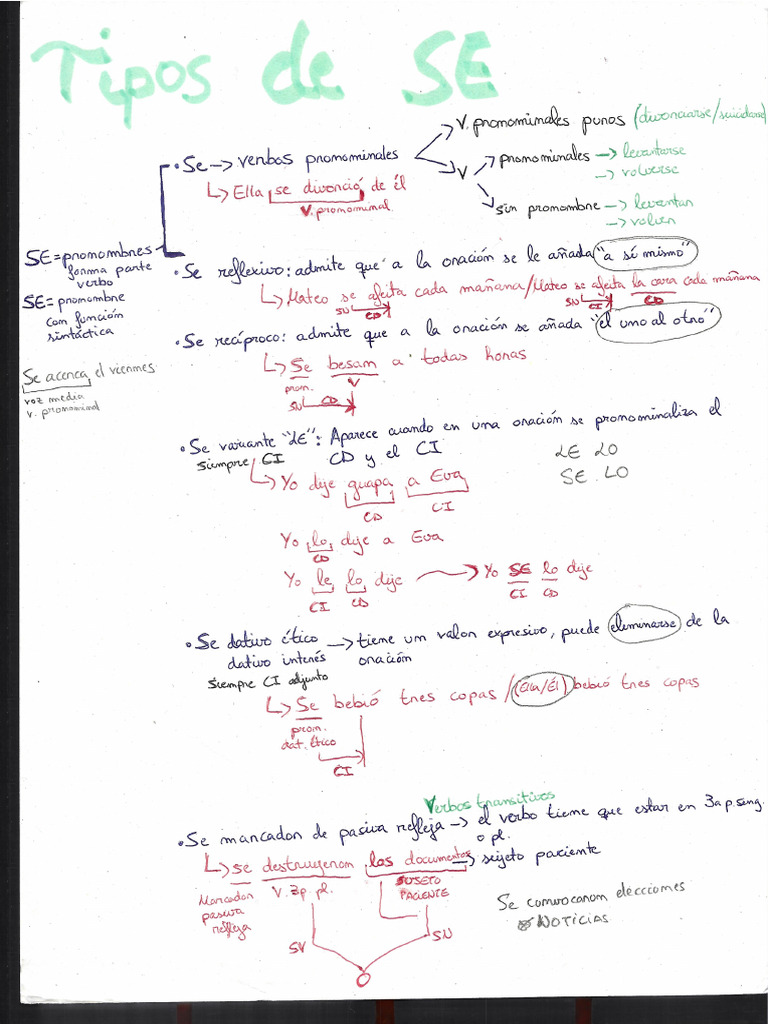 Tipos de SE
V. pronominales puros (divorciarse/suicidarse)
• Se → verbos pronominales
V
pronominales → levantarse
→ volverse
sin pronombre → levantar
→ volver
↳ Ella se divorció de él
V. pronominal
SE = pronombres
forma parte
verbo
SE = pronombre
con función
sintáctica
• Se reflexivo: admite que a la oración se le añada "a sí mismo"
↳ Mateo se afeita cada mañana/Mateo se afeita la cara cada mañana
SN CD
SN CI CD
• Se recíproco: admite que a la oración se añada "el uno al otro"
↳ Se besan a todas horas
pron. V
SN CD
Se acerca el viernes
voz media
v. pronominal
• Se variante "LE": Aparece cuando en una oración se pronominaliza el
siempre CI CD y el CI
LE LO
SE LO
↳ Yo dije guapa a Eva
CD CI
Yo lo dije a Eva
CD
Yo le lo dije → Yo SE lo dije
CI CD CI CD
• Se dativo ético → tiene un valor expresivo, puede eliminarse de la
dativo interés oración
siempre CI adjunto
↳ Se bebió tres copas / (Ella/Él) bebió tres copas
pron.
dat. ético
CI
Verbos transitivos
• Se marcador de pasiva refleja → el verbo tiene que estar en 3a p. sing.
o pl.
↳ se destruyeron los documentos → sujeto paciente
Marcador
pasiva
refleja
V. 3p. pl.
SUJETO
PACIENTE
Se convocaron elecciones
NOTICIAS
SV SN
O